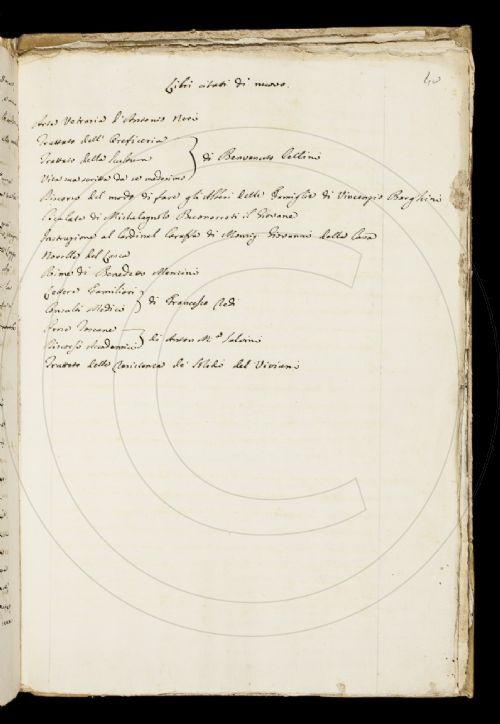 40
Libri citati di nuovo.
Arte Vetraria d'Antonio Neri
Trattato dell' Oreficeria
Trattato della Scultura
di Benvenuto Cellini
Vita sua scritta da se medesimo
Discorso del modo di fare gli Alberi delle Famiglie di Vincenzio Borghini
Cicalata di Michelagnolo Buonarroti il Giovane
Instruzione al Cardinal Caraffa di Monsig. Giovanni della Casa
Novelle del Lasca
Rime di Benedetto Menzini
Lettere Familiari
Consulti Medici
di Francesco Redi
Prose Toscane
Discorsi Accademici
di Anton M.ª Salvini
Trattato delle Resistenze de Solidi del Viviani